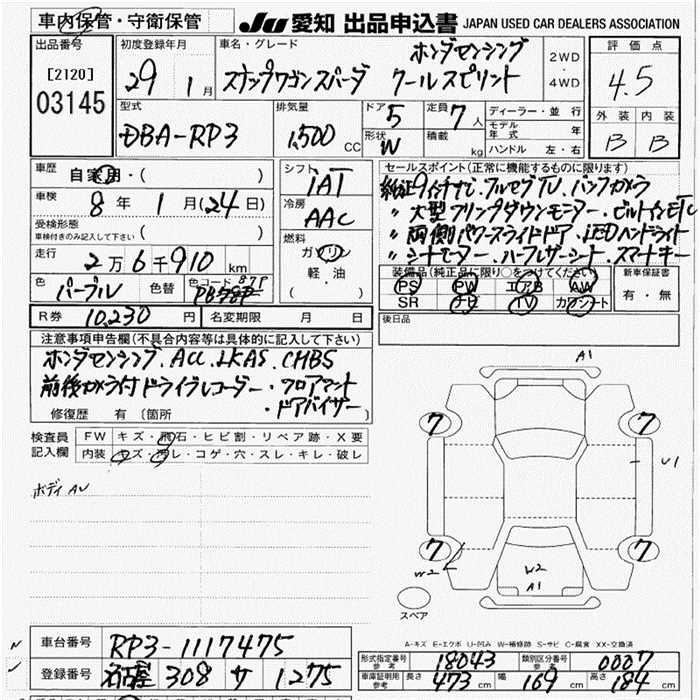 車内保管・守衛保管
JU 愛知 出品申込書 JAPAN USED CAR DEALERS ASSOCIATION
出品番号
[2120]
03145
初度登録年月
29 1月
車名・グレード
ホンダセンシング
ステップワゴン スパーダ クールスピリット
2WD
・
4WD
評価点
4.5
外装 内装
B B
型式
DBA-RP3
排気量
1,500 CC
ドア
5
形状
W
定員
7人
積載
kg
ディーラー・並行
モデル年式 年
ハンドル 左・右
車歴
自家用・( )
車検
8年 1月(24日)
受検形態
車検付きのみ記入して下さい ( )
走行
2万6千910km
色
パープル
色替
色コード 87P
PB78P
( )
シフト
IAT
冷房
AAC
燃料
ガソリン
軽・油
( )
セールスポイント(正常に機能するものに限ります)
純正9インチナビ・フルセグTV・バックカメラ
〃 大型フリップダウンモニター・ビルトインETC
〃 両側パワースライドドア・LEDヘッドライト
〃 シートヒーター・ハーフレザーシート・スマートキー
装備品(純正品に限り○をつけてください)
PS PW エアB AW
SR ナビ TV カワシート
新車保証書
有・無
R券 10,230 円
名変期限 月 日
後日品
注意事項申告欄(不具合内容等は具体的に記入して下さい)
ホンダセンシング、ACC、LKAS、CMBS
前後カメラ付ドライブレコーダー・フロアマット
・ドアバイザー
修復歴 有 (箇所 )
検査員記入欄
FW キズ・飛石・ヒビ割・リペア跡・X要
内装 キズ・汚レ・コゲ・穴・スレ・キレ・破レ
ボディAU
A1
7 7
U1
7 7
W2
W2
A1
スペア
A-キズ E-エクボ U-凹み W-補修跡 S-サビ C-腐食 XX-交換済
車台番号
RP3-1117475
登録番号
名古屋 308 サ 1275
形式指定番号参考 18043
類別区分番号参考 0007
車庫証明用参考
長さ 473 cm 幅 169 cm 高さ 184 cm